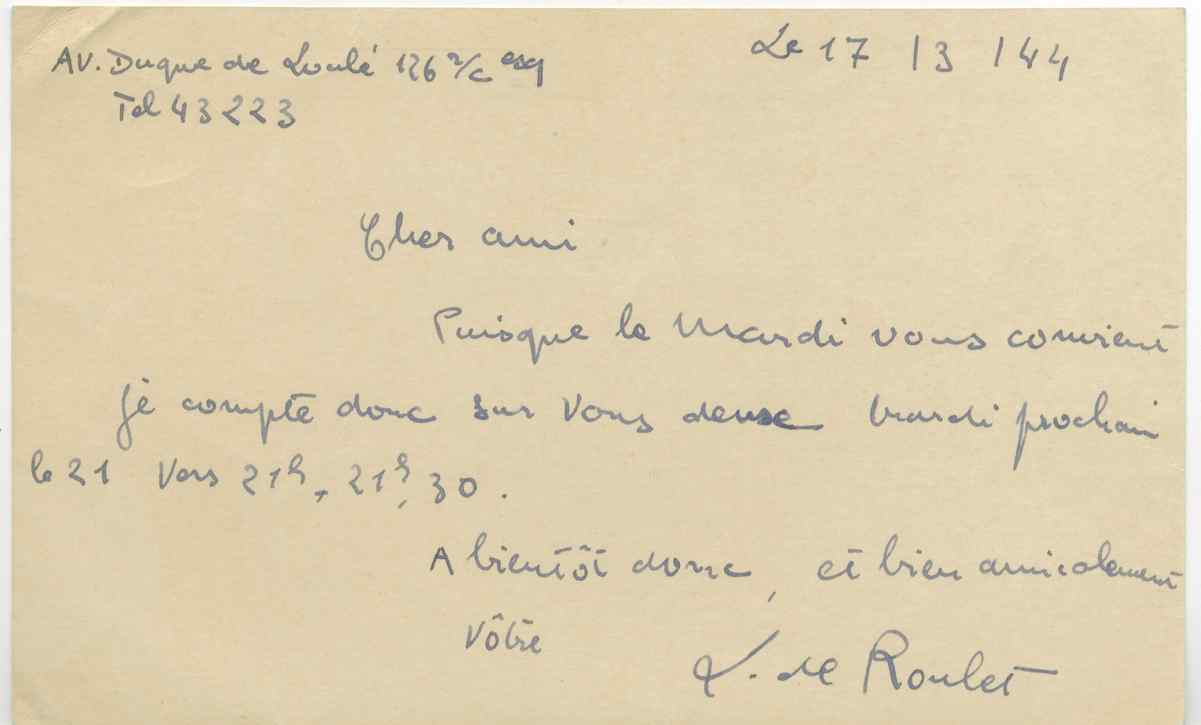 AV. Duque de Loulé 126 r/c esq
Tel 43223
Le 17 /3 /44
Cher ami
Puisque le Mardi vous convient
je compte donc sur vous deux Mardi prochain
le 21 vers 21h, 21h,30.
A bientôt donc, et bien amicalement
vôtre
de Roulet